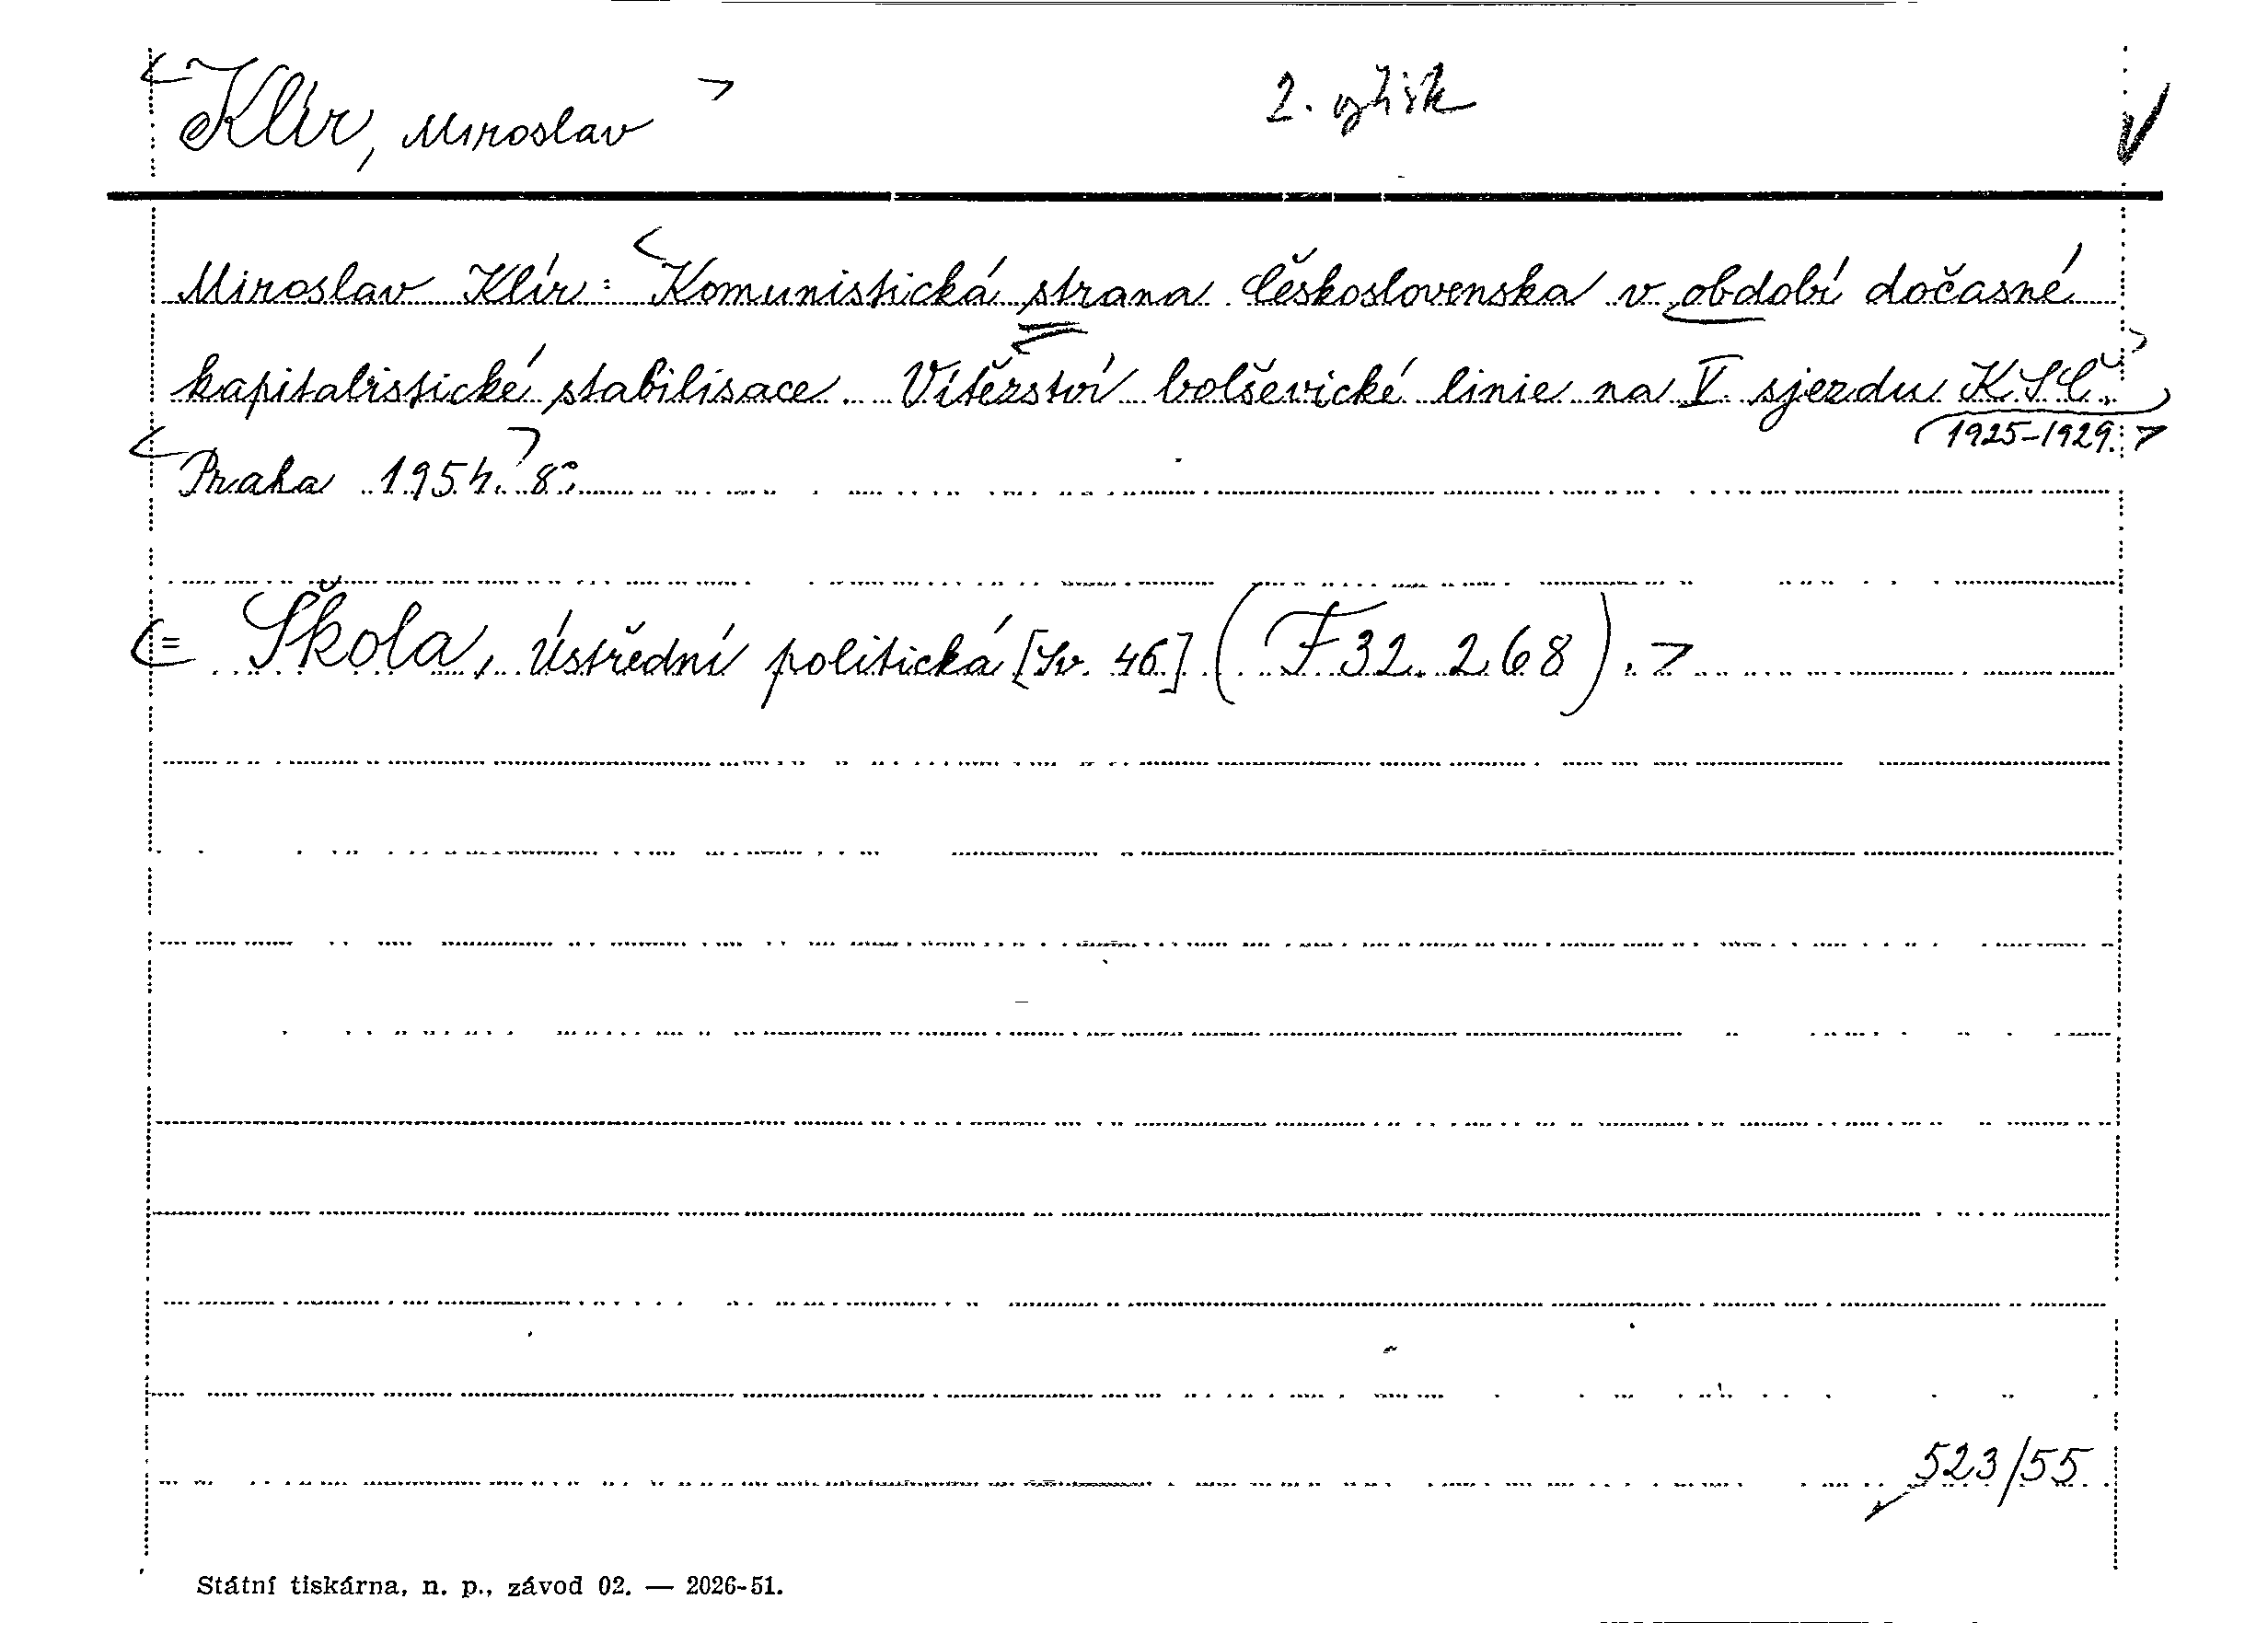 Klír, Miroslav
2. výtisk
Miroslav Klír: Komunistická strana Československa v období dočasné
kapitalistické stabilisace. Vítězství bolševické linie na V. sjezdu KSČ.
1925-1929.
Praha 1954. 8°.
= Škola, Ústřední politická [Sv. 46] (F 32.268).
523/55
Státní tiskárna, n. p., závod 02. — 2026-51.